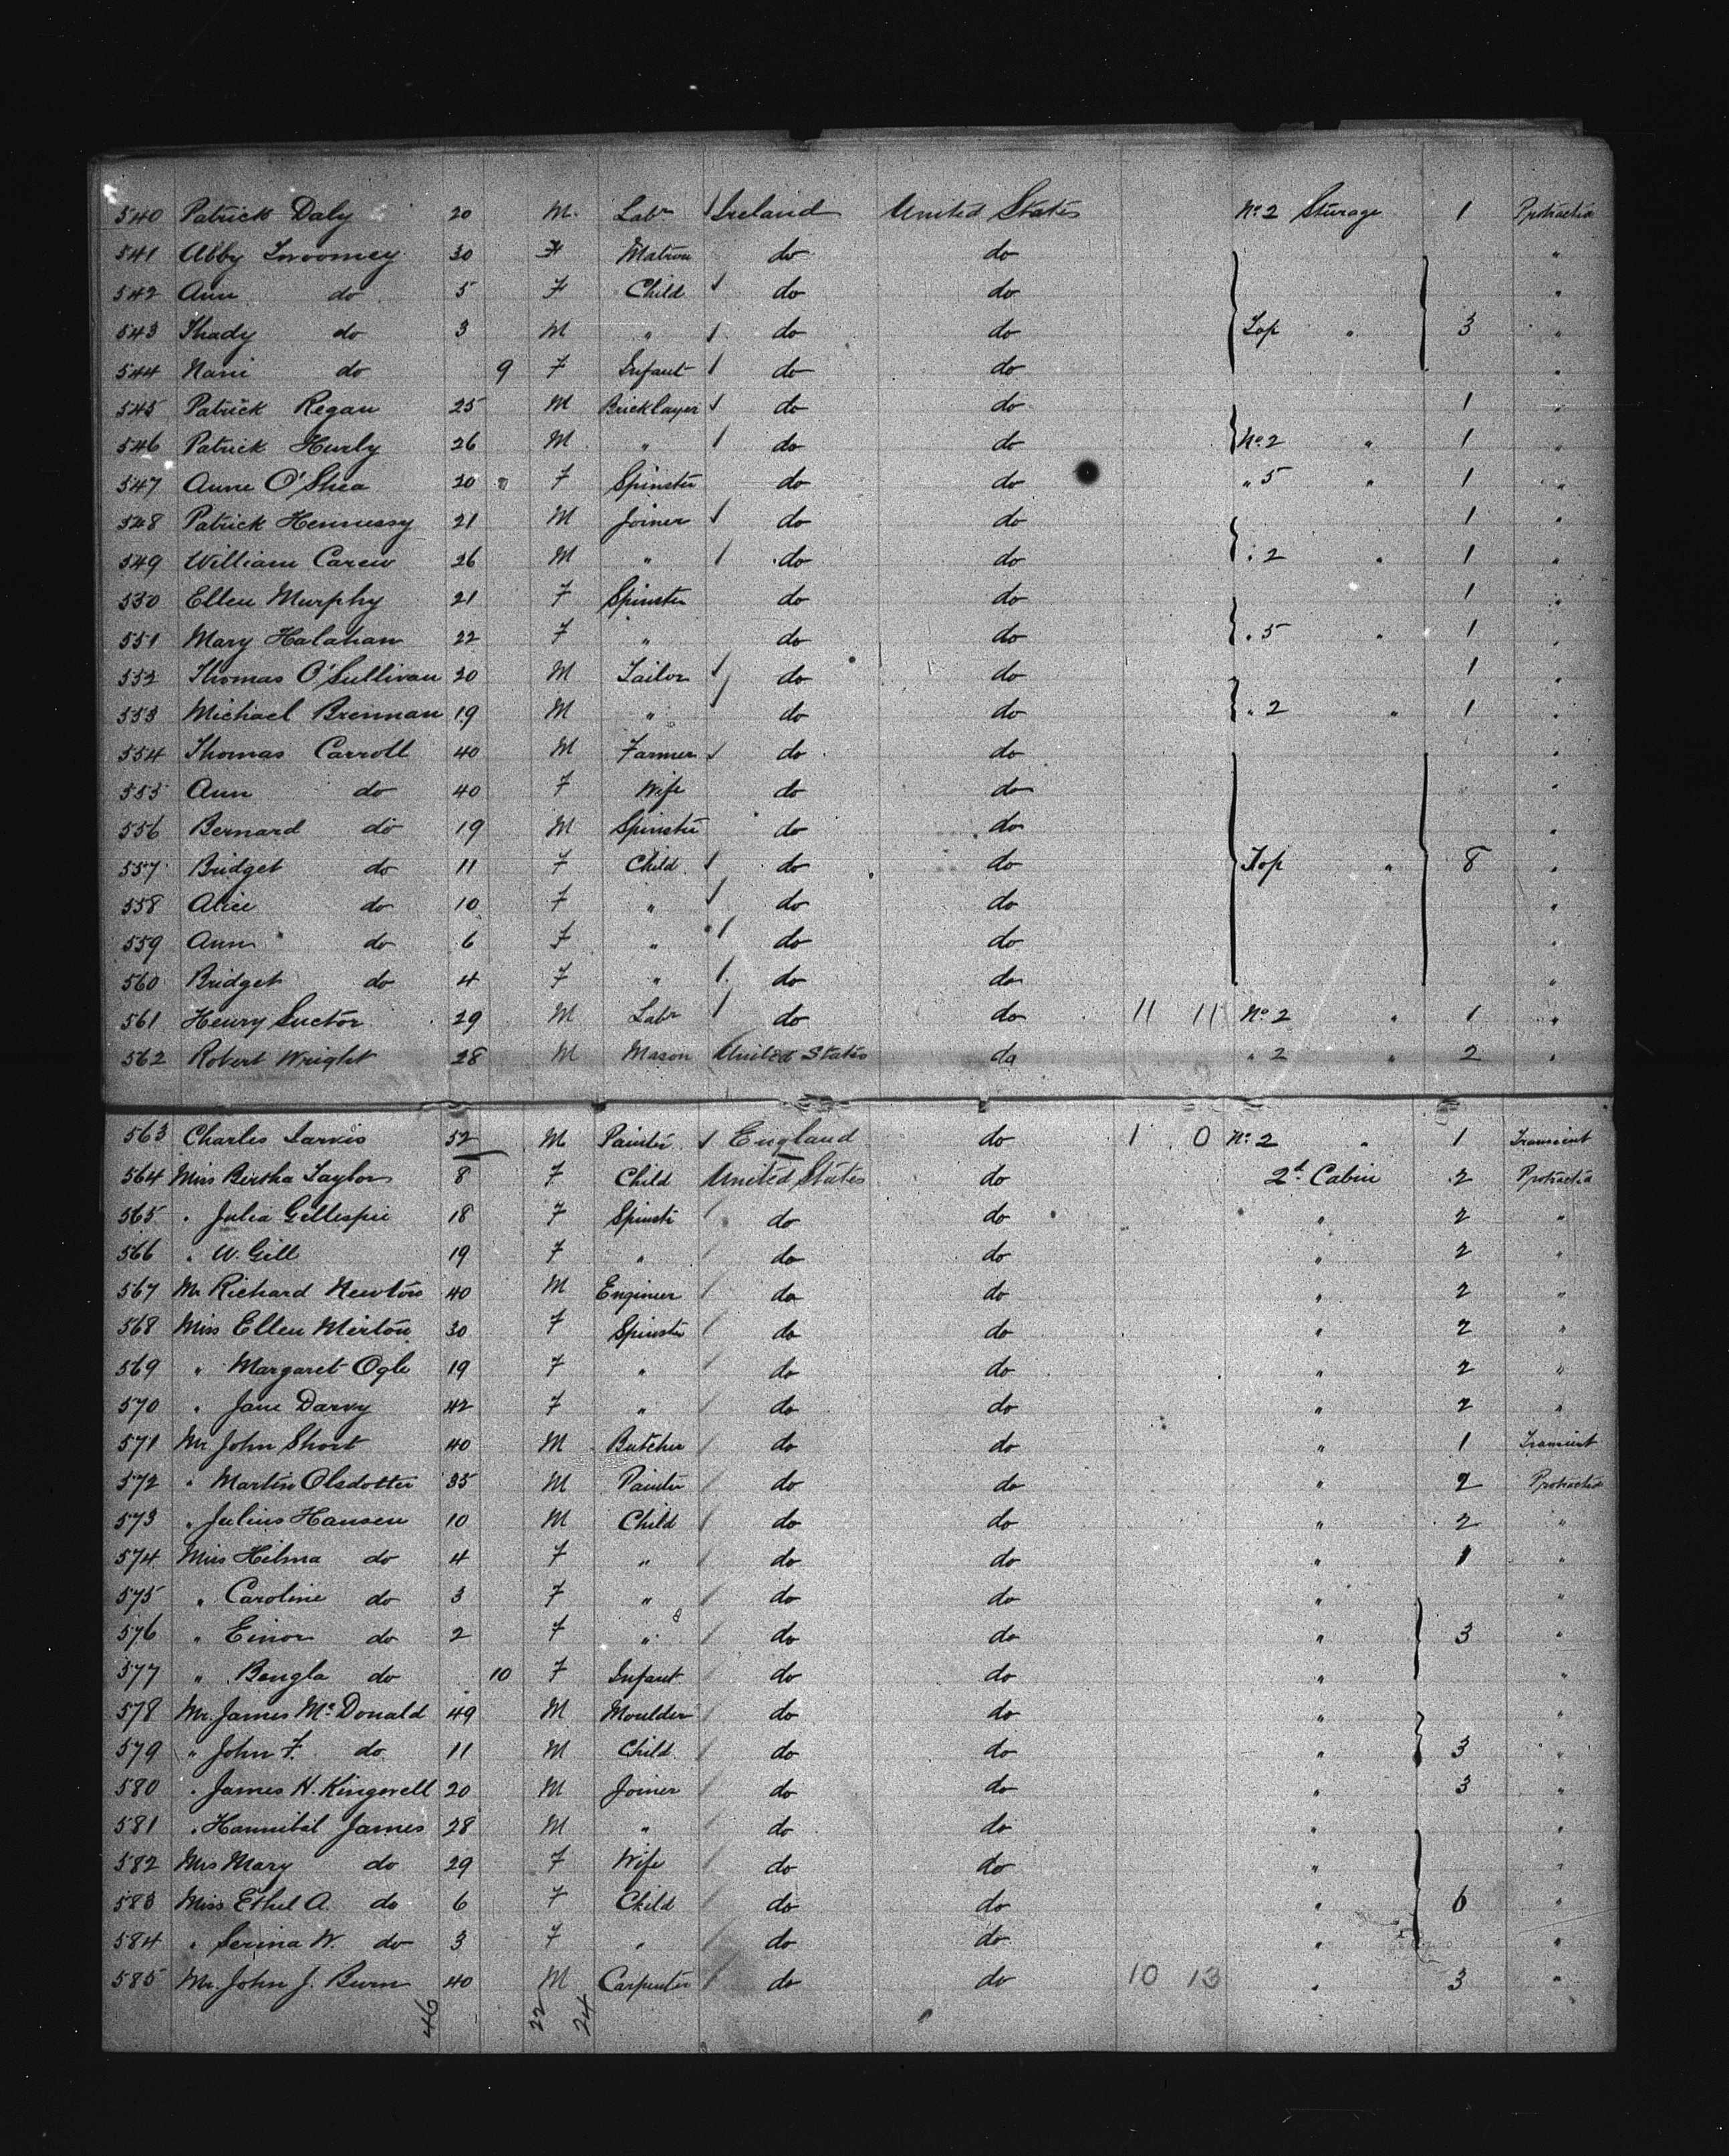 540 Patrick Daly 20 M. Labr Ireland United States No. 2 Sturage 1 Protracted
541 Abby Twoomey 30 F Matron do do "
542 Ann do 5 F Child do do "
543 Thady do 3 M " do do Top " 3 "
544 Nani do 9 F Infant do do "
545 Patrick Regan 25 M Bricklayer do do 1 "
546 Patrick Hurly 26 M " do do No. 2 " 1 "
547 Anne O'Shea 20 F Spinster do do " 5 " 1 "
548 Patrick Hennessy 21 M Joiner do do 1 "
549 William Carew 26 M " do do " 2 " 1 "
550 Ellen Murphy 21 F Spinster do do 1 "
551 Mary Halahan 22 F " do do " 5 " 1 "
552 Thomas O'Sullivan 20 M Tailor do do 1 "
553 Michael Brennan 19 M " do do " 2 " 1 "
554 Thomas Carroll 40 M Farmer do do "
555 Ann do 40 F Wife do do "
556 Bernard do 19 M Spinster do do "
557 Bridget do 11 F Child do do Top " 8 "
558 Alice do 10 F " do do "
559 Ann do 6 F " do do "
560 Bridget do 4 F " do do "
561 Henry Suctor 29 M Labr do do 11 11 No. 2 " 1 "
562 Robert Wright 28 M Mason United States do " 2 " 2 "
563 Charles Jarvis 52 M Painter England do 1 0 No. 2 " 1 Transient
564 Miss Bertha Taylor 8 F Child United States do 2d Cabin 2 Protracted
565 " Julia Gillespie 18 F Spinster do do " 2 "
566 " W. Gill 19 F " do do " 2 "
567 Mr Richard Newton 40 M Engineer do do " 2 "
568 Miss Ellen Mirton 30 F Spinster do do " 2 "
569 " Margaret Ogle 19 F " do do " 2 "
570 " Jane Darvy 42 F " do do " 2 "
571 Mr John Short 40 M Butcher do do " 1 Transient
572 " Martin Olsdotter 35 M Painter do do " 2 Protracted
573 " Julius Hansen 10 M Child do do " 2 "
574 Miss Hilma do 4 F " do do " 1 "
575 " Caroline do 3 F " do do " "
576 " Einor do 2 F " do do " 3 "
577 " Bengla do 10 F Infant do do " "
578 Mr. James McDonald 49 M Moulder do do " "
579 " John F. do 11 M Child do do " 3 "
580 " James H. Kingwell 20 M Joiner do do " 3 "
581 " Hannibal James 28 M " do do " "
582 Mrs Mary do 29 F Wife do do " "
583 Miss Ethel A. do 6 F Child do do " 6 "
584 " Serina W. do 3 F " do do " "
585 Mr. John J. Burn 40 M Carpenter do do 10 13 " 3 "
46 22 24